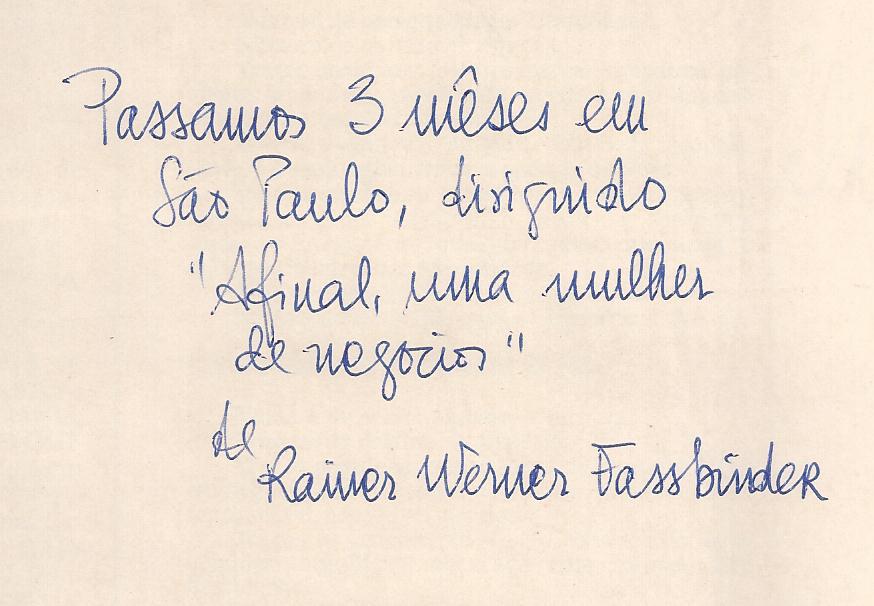 Passamos 3 mêses em
São Paulo, dirigindo
"Afinal, uma mulher
de negocios"
de
Rainer Werner Fassbinder